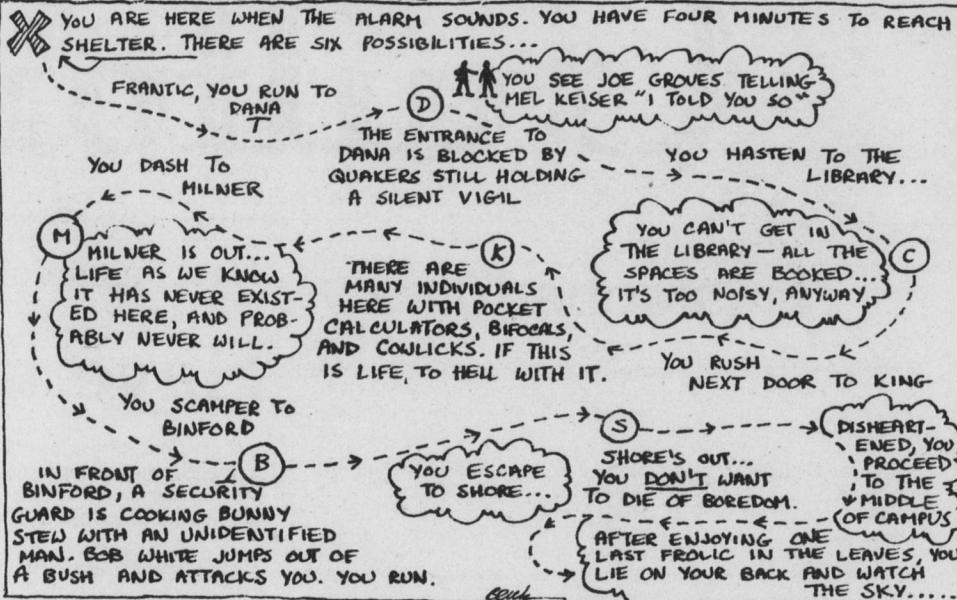 YOU ARE HERE WHEN THE ALARM SOUNDS. YOU HAVE FOUR MINUTES TO REACH
SHELTER. THERE ARE SIX POSSIBILITIES...
FRANTIC, YOU RUN TO
DANA
D
YOU SEE JOE GROVES TELLING
MEL KEISER "I TOLD YOU SO"
THE ENTRANCE TO
DANA IS BLOCKED BY
QUAKERS STILL HOLDING
A SILENT VIGIL
YOU HASTEN TO THE
LIBRARY...
C
YOU CAN'T GET IN
THE LIBRARY — ALL THE
SPACES ARE BOOKED...
IT'S TOO NOISY, ANYWAY
YOU RUSH
NEXT DOOR TO KING
K
THERE ARE
MANY INDIVIDUALS
HERE WITH POCKET
CALCULATORS, BIFOCALS,
AND COWLICKS. IF THIS
IS LIFE, TO HELL WITH IT.
YOU DASH TO
MILNER
M
MILNER IS OUT...
LIFE AS WE KNOW
IT HAS NEVER EXIST-
ED HERE, AND PROB-
ABLY NEVER WILL.
YOU SCAMPER TO
BINFORD
B
IN FRONT OF
BINFORD, A SECURITY
GUARD IS COOKING BUNNY
STEW WITH AN UNIDENTIFIED
MAN. BOB WHITE JUMPS OUT OF
A BUSH AND ATTACKS YOU. YOU RUN.
YOU ESCAPE
TO SHORE...
S
SHORE'S OUT...
YOU DON'T WANT
TO DIE OF BOREDOM.
DISHEART-
ENED, YOU
PROCEED
TO THE
MIDDLE
OF CAMPUS
AFTER ENJOYING ONE
LAST FROLIC IN THE LEAVES, YOU
LIE ON YOUR BACK AND WATCH
THE SKY.....